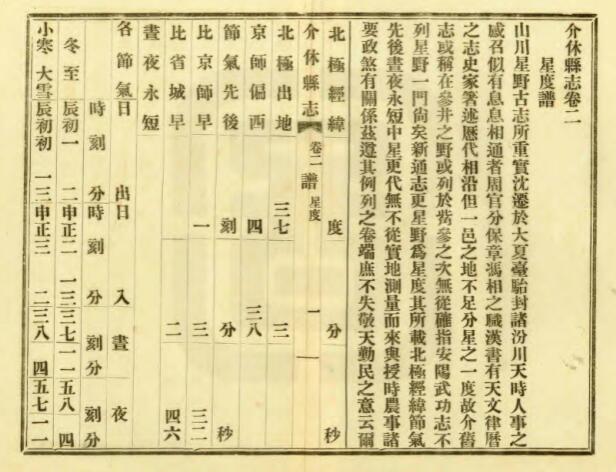 介休縣志卷二
星度譜
山川星野古志所重實沈遷於大夏臺駘封諸汾川天時人事之
感召似有息息相通者周官分保章馮相之職漢書有天文律曆
之志史家箸述歷代相沿但一邑之地不足分星之一度故介舊
志或稱在參井之野或列於觜參之次無從確指安陽武功志不
列星野一門尙矣新通志更星野爲星度其所載北極經緯節氣
先後晝夜永短中星更代無不從實地測量而來與授時農事諸
要政煞有關係茲遵其例列之卷端庶不失敬天勤民之意云爾
北極經緯 度 分 秒
介休縣志 卷二 譜 星度 一
北極出地 三七 三
京師偏西 四 三八
節氣先後 刻 分 秒
比京師早 一 三 三二
比省城早 二 四六
晝夜永短
各節氣 日出 日入 晝 夜
時刻分 時刻分 刻分 刻分
冬至 辰初一 二 申正二 一三 三七 一一 五八 四
小寒 大雪 辰初初 一三 申正三 二 三八 四 五七 一一